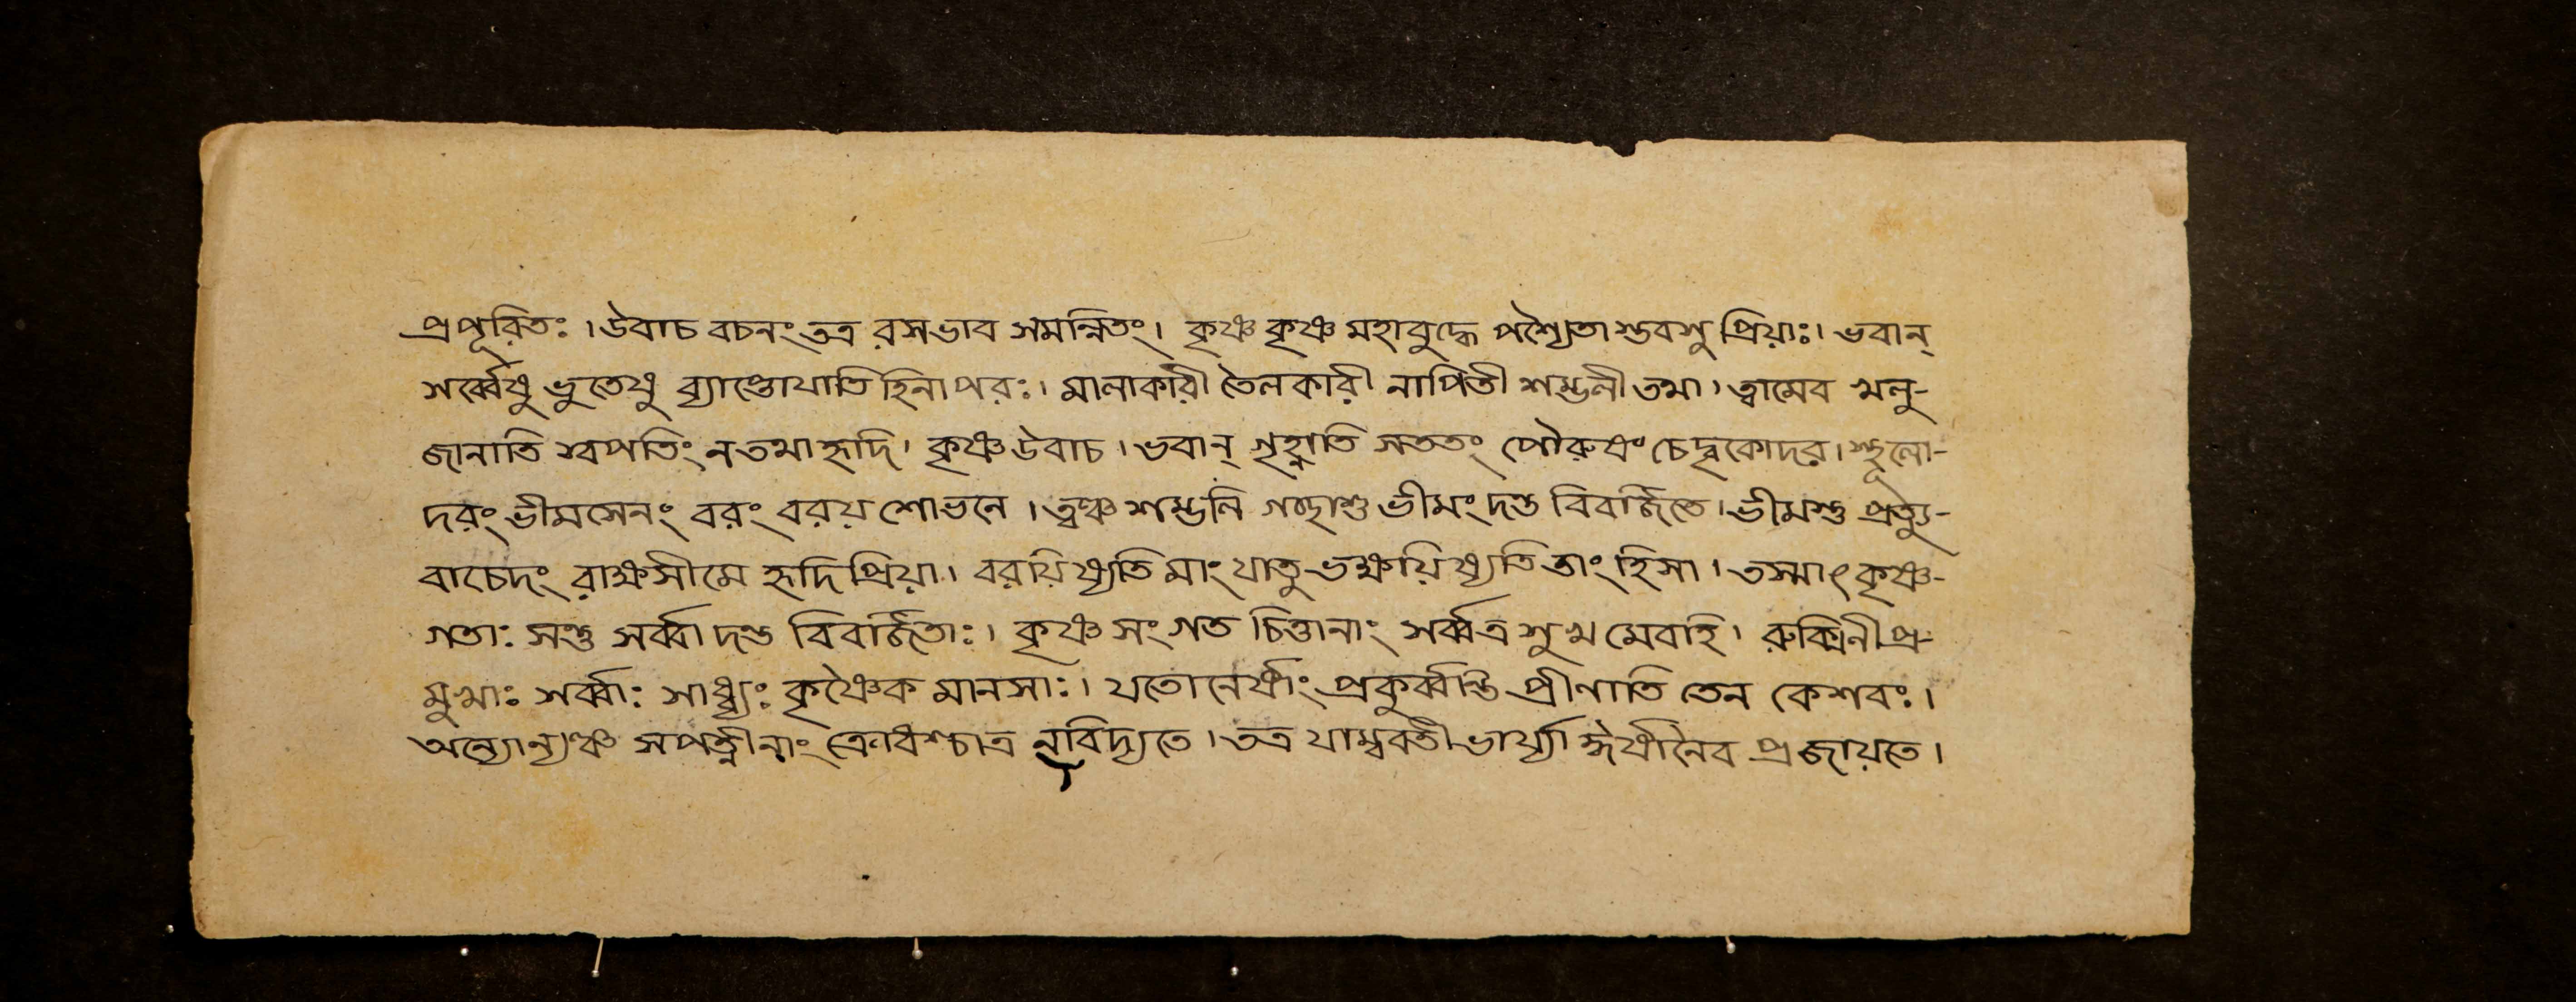 প্রপূরিতঃ । উবাচ বচনং তত্র রসভাব সমন্নিতং । কৃষ্ণ কৃষ্ণ মহাবুদ্ধে পশ্যৈতা স্তবসু প্রিয়াঃ । ভবান্
সর্ব্বেষু ভুতেষু ব্যাপ্তোযাতি হিনাপরঃ । মালাকারী তৈলকারী নাপিতী শম্ভলী তথা । ত্বামেব খলু-
জানাতি স্বপতিং ন তথা হৃদি । কৃষ্ণ উবাচ । ভবান্ গৃহ্ণাতি সততং পৌরুষং চেদ্বৃকোদর । স্থূলো-
দরং ভীমসেনং বরং বরয় শোভনে । ত্বঞ্চ শম্ভলি গচ্ছাশু ভীমং দম্ভ বিবর্জিতে । ভীমস্তু প্রত্যু-
বাচেদং রাক্ষসী মে হৃদি প্রিয়া । বরয়িষ্যতি মাং যাতু ভক্ষয়িষ্যতি তাং হি সা । তস্মাৎ কৃষ্ণ-
গতাঃ সন্তু সর্ব্বা দম্ভ বিবর্জিতাঃ । কৃষ্ণ সংগত চিত্তানাং সর্ব্বত্র সুখ মেবাহি । রুক্মিনী প্র-
মুখাঃ সর্ব্বাঃ সাধ্ব্যঃ কৃষ্ণৈক মানসাঃ । যতো নের্ষাং প্রকুর্ব্বন্তি প্রীণাতি তেন কেশবঃ ।
অন্যোন্যঞ্চ সপত্নীনাং ক্রোধশ্চাত্র ন বিদ্যতে । তত্র যাম্ববতী ভার্য্যা ঈর্ষা নৈব প্রজায়তে ।